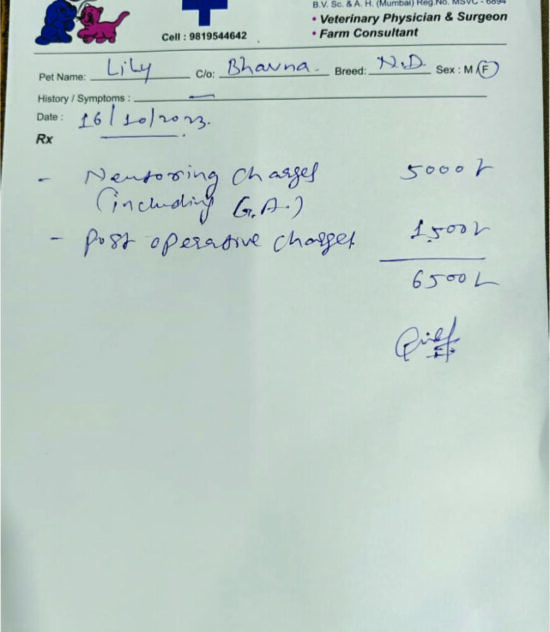 B.V. Sc. & A. H. (Mumbai) Reg.No. MSVC - 6894
• Veterinary Physician & Surgeon
• Farm Consultant
Cell : 9819544642
Pet Name: Lily C/o: Bhavna. Breed: N.D. Sex : M F
History / Symptoms : —
Date : 16/10/2023.
Rx
- Neutoring charges 5000/-
(including G.A.)
- post operative charges 1500/-
6500/-